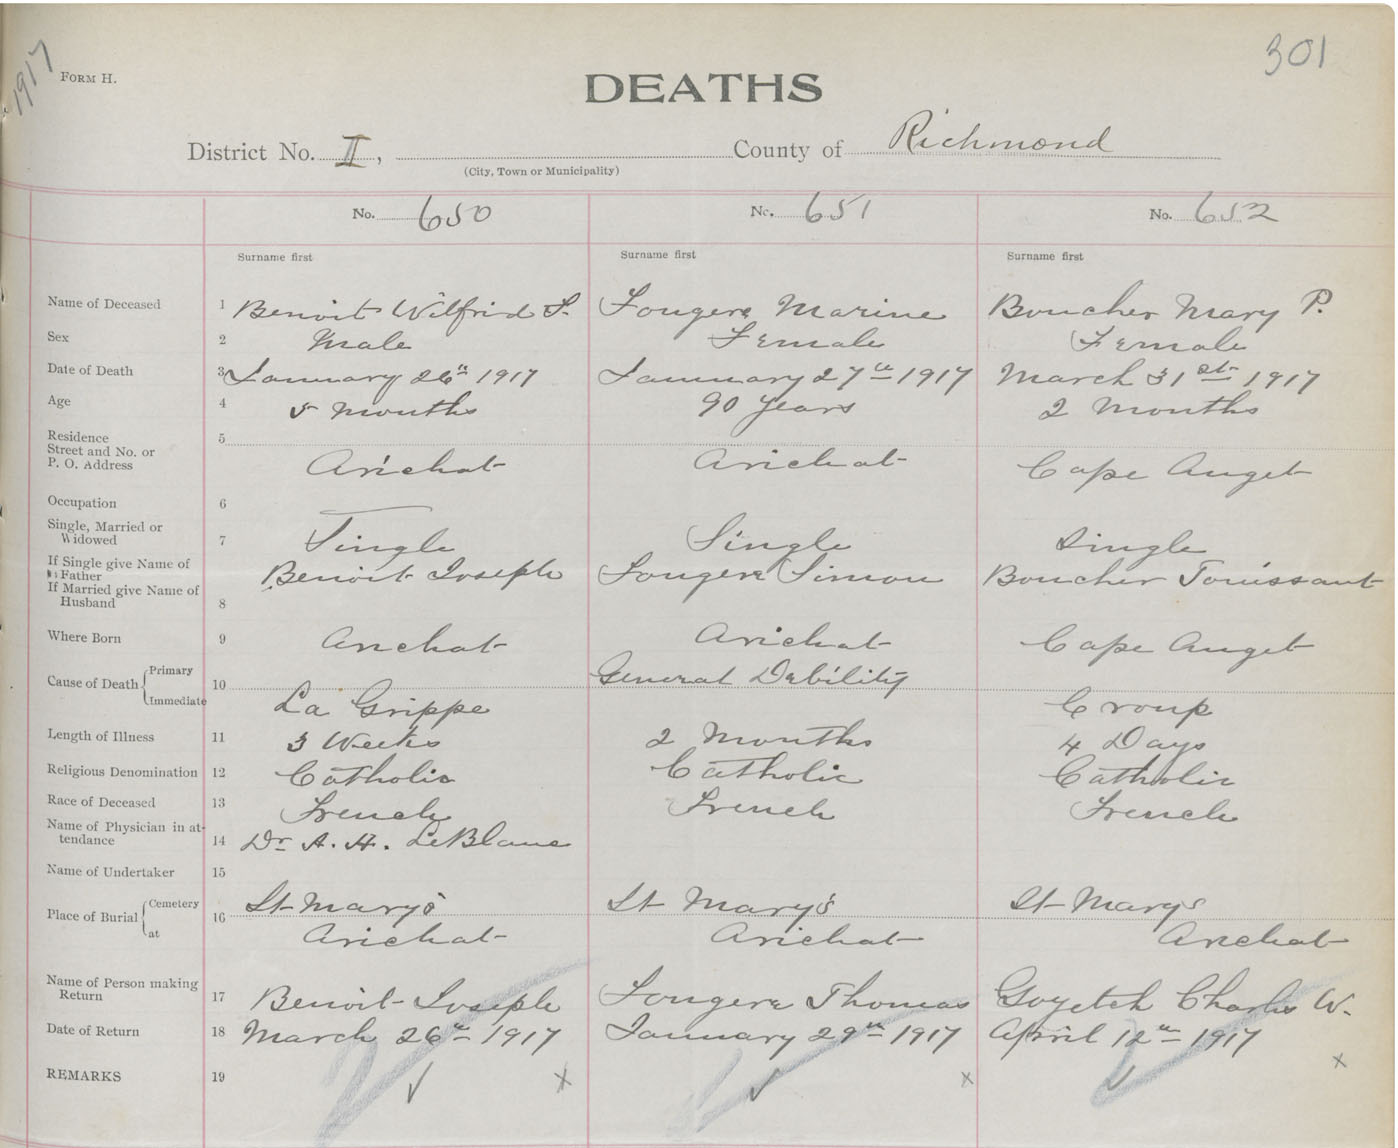 1917
301
FORM H.
DEATHS
District No. II, County of Richmond
(City, Town or Municipality)
No. 650 No. 651 No. 652
Surname first Surname first Surname first
Name of Deceased 1 Benoit Wilfrid S. Fougere Marine Boucher Mary P.
Sex 2 Male Female Female
Date of Death 3 January 26th 1917 January 27th 1917 March 31st 1917
Age 4 5 Months 90 years 2 Months
Residence 5
Street and No. or
P. O. Address Arichat Arichat Cape Auget
Occupation 6
Single, Married or
Widowed 7 Single Single Single
If Single give Name of
Father Benoit Joseph Fougere Simon Boucher Touissant
If Married give Name of
Husband 8
Where Born 9 Arichat Arichat Cape Auget
Cause of Death { Primary 10 General Debility
Immediate La Grippe Croup
Length of Illness 11 3 Weeks 2 Months 4 Days
Religious Denomination 12 Catholic Catholic Catholic
Race of Deceased 13 French French French
Name of Physician in at-
tendance 14 Dr A. H. LeBlanc
Name of Undertaker 15
Place of Burial { Cemetery 16 St Mary's St Mary's St Mary's
at Arichat Arichat Arichat
Name of Person making
Return 17 Benoit Joseph Fougere Thomas Goyetch Charles W.
Date of Return 18 March 26th 1917 January 29th 1917 April 12th 1917
REMARKS 19 ✓ x ✓ x ✓ x